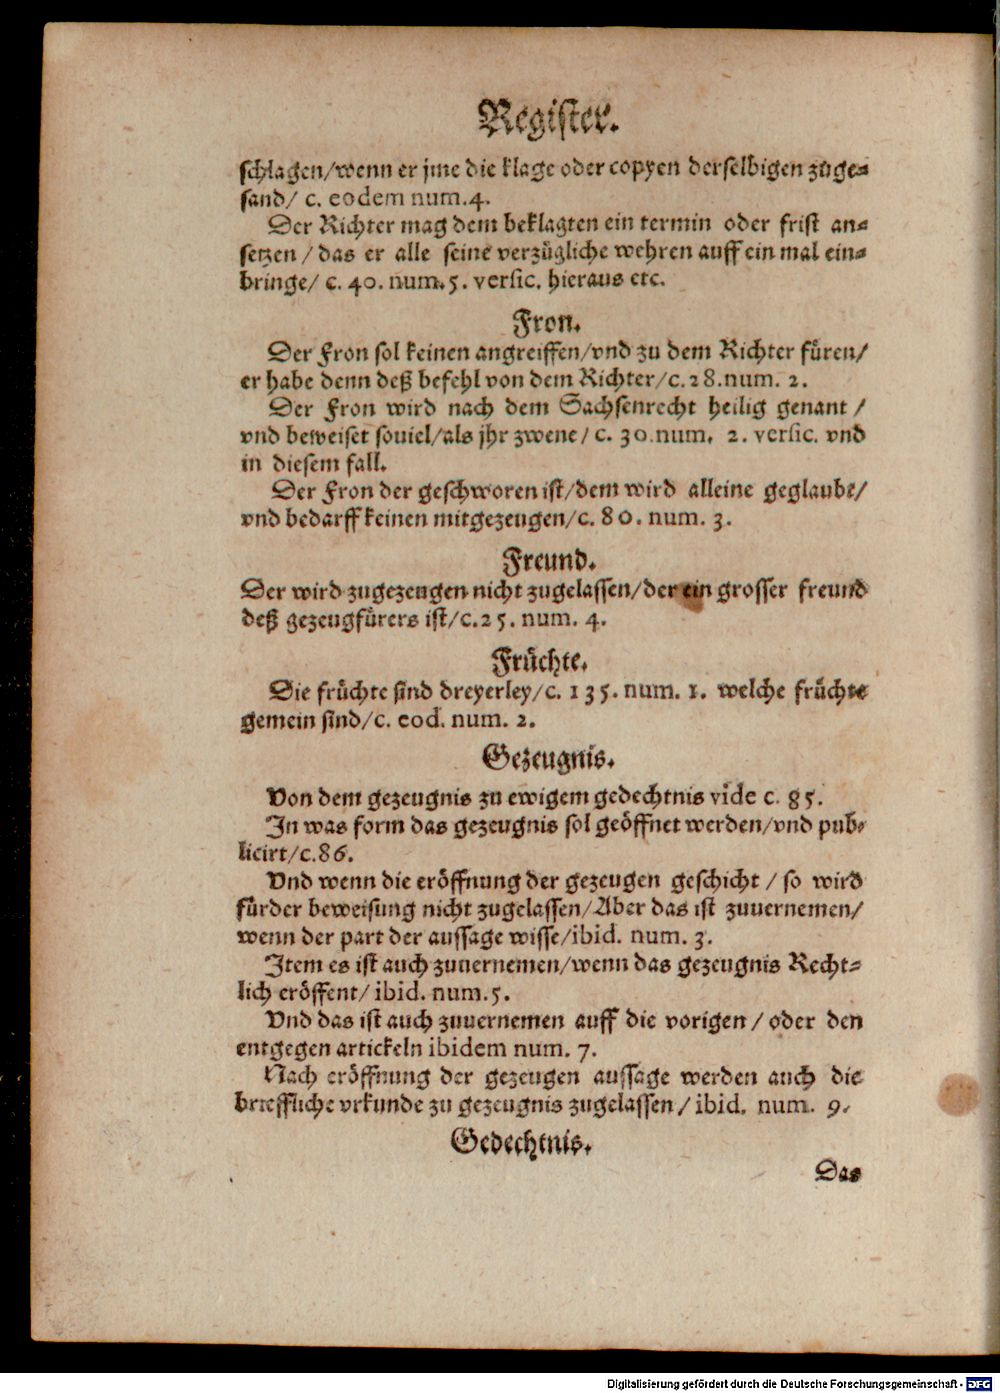 Register.
schlagen/wenn er jme die klage oder copyen derselbigen zůge⸗
sand/ c. eodem num.4.
Der Richter mag dem beklagten ein termin oder frist an⸗
setzen / das er alle seine verzügliche wehren auff ein mal ein⸗
bringe/ c. 40. num. 5. versic. hieraus etc.
Fron.
Der Fron sol keinen angreiffen/vnd zu dem Richter füren/
er habe denn deß befehl von dem Richter/c.28.num. 2.
Der Fron wird nach dem Sachsenrecht heilig genant /
vnd beweiset souiel/als jhr zwene/ c. 30.num. 2. versic. vnd
in diesem fall.
Der Fron der geschworen ist/dem wird alleine geglaube/
vnd bedarff keinen mitgezeugen/c. 80. num. 3.
Freund.
Der wird zugezeugen nicht zugelassen/der ein grosser freund
deß gezeugfürers ist/c.25. num. 4.
Früchte.
Die früchte sind dreyerley/c. 135. num. 1. welche früchte
gemein sind/c. eod. num. 2.
Gezeugnis.
Von dem gezeugnis zu ewigem gedechtnis vide c. 85.
In was form das gezeugnis sol geöffnet werden/vnd pub⸗
licirt/c.86.
Vnd wenn die eröffnung der gezeugen geschicht / so wird
fürder beweisung nicht zugelassen/Aber das ist zuuernemen/
wenn der part der aussage wisse/ibid. num. 3.
Item es ist auch zuuernemen/wenn das gezeugnis Recht⸗
lich eröffent/ ibid. num.5.
Vnd das ist auch zuuernemen auff die vorigen / oder den
entgegen artickeln ibidem num. 7.
Nach eröffnung der gezeugen aussage werden auch die
brieffliche vrkunde zu gezeugnis zugelassen/ ibid. num. 9.
Gedechtnis.
Das
Digitalisierung gefördert durch die Deutsche Forschungsgemeinschaft - DFG